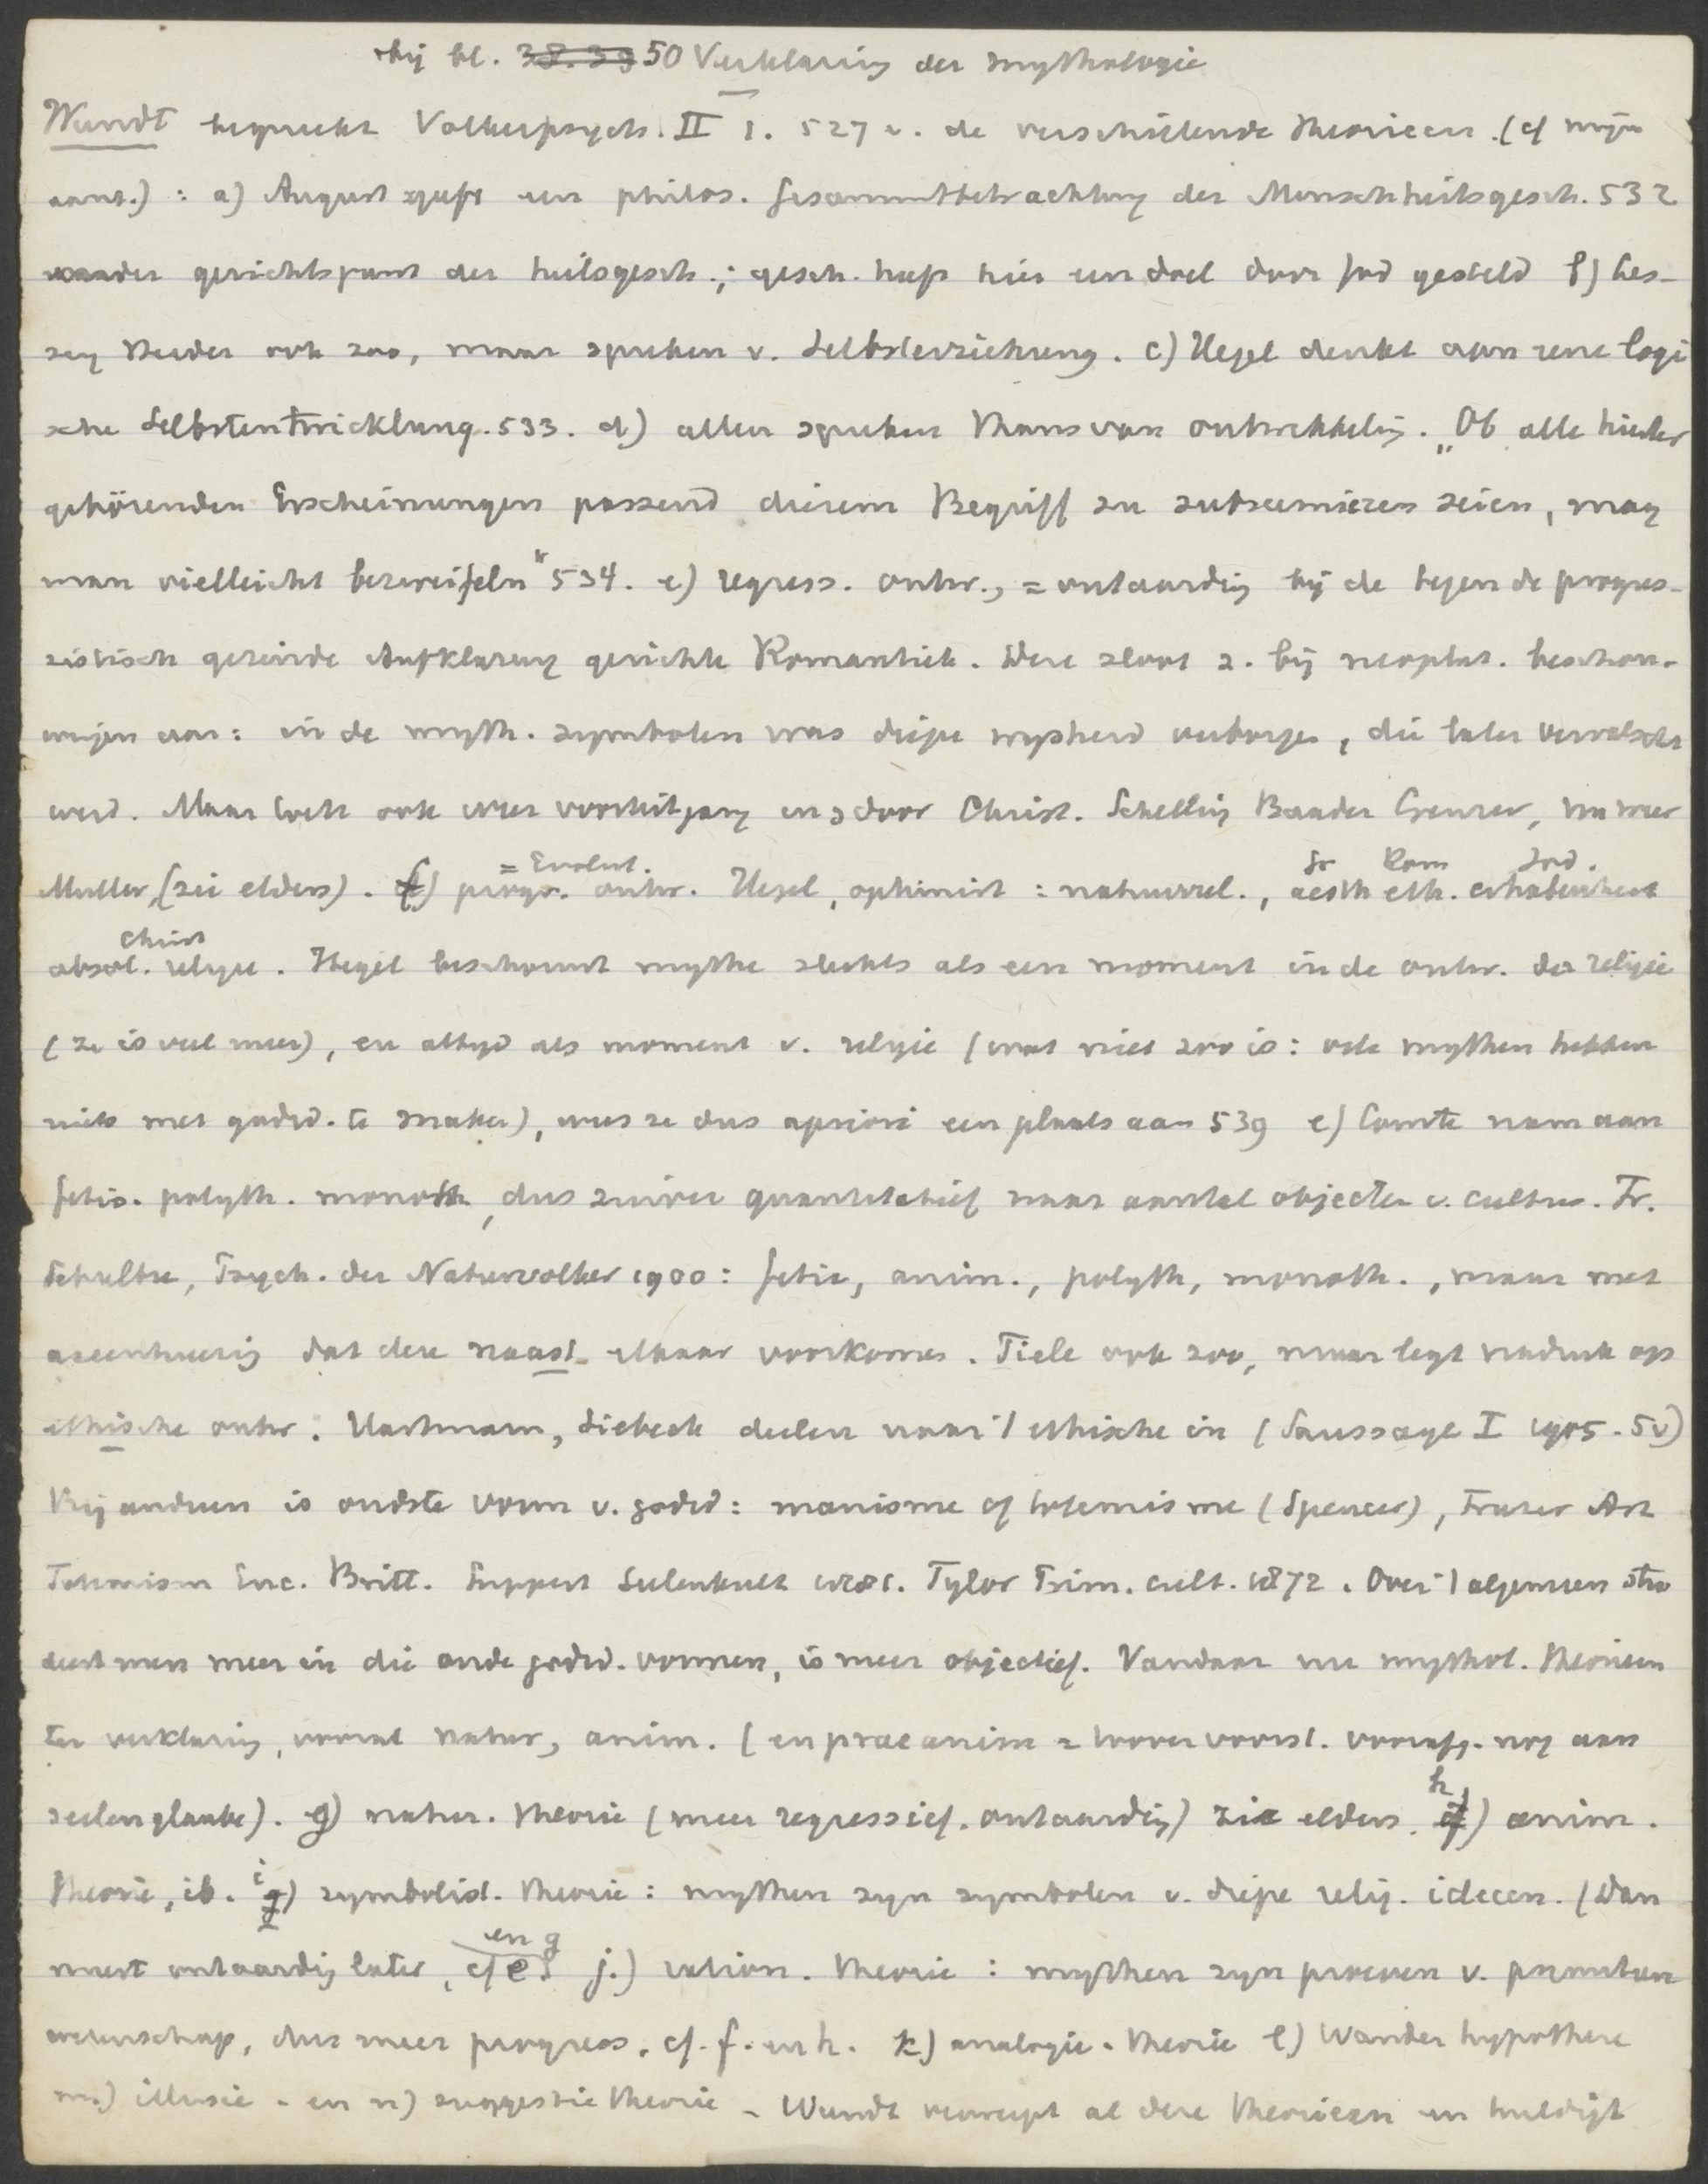 bij bl. 38. 39 50 Verklaring der mythologie
Wundt bespreekt Volkerpsych. II 1. 527 v. de verschillende theorieen. (cf mijn
aant.) : a) August geeft een philos. Gesammtbetrachtung der Menschheitsgesch. 532
onder gezichtspunt der heilsgesch.; gesch. heeft hier een doel door God gesteld b) Les-
sing Herder ook zoo, maar spreken v. Selbsterziehung. c) Hegel denkt aan eene logi
sche Selbstentwicklung. 533. d) allen spreken thans van ontwikkeling. „Ob alle hierher
gehörenden Erscheinungen passend diesem Begriff zu subsumieren seien, mag
man vielleicht bezweifeln" 534. e) regress. ontw., = ontaarding bij de tegen de progres-
sistisch gezinde Aufklarung gerichte Romantiek. Deze sloot z. bij neoplat. beschou-
wingen aan: in de myth. symbolen was diepe wysheid verborgen, die later vervalscht
werd. Maar toch ook weer vooruitgang en door Christ. Schelling Baader Creuzer,
Muller, (zie elders). f) progr. ontw. = Evolut. Hegel, optimist : natuurrel., aesth eth. erhabenheit Gr Rom Jod.
absol. religie. Christ Hegel beschouwt mythe slechts als een moment in de ontw. der religie
(ze is veel meer), en altyd als moment v. religie (wat niet zoo is: vele mythen hebben
niets met godsd. te maken), wees ze dus apriori een plaats aan 539 e) Comte nam aan
fetis. polyth. monoth, dus zuiver quantitatief naar aantal objecten v. cultus. Fr.
Schultze, Psych. der Naturvolker 1900: fetis, anim., polyth, monoth., maar met
accentueering dat deze naast elkaar voorkomen. Tiele ook zoo, maar legt nadruk op
ethische ontw. Hartmann, Siebeck deelen naar 't ethische in (Saussaye I 1905. 5v)
Bij anderen is oudste vorm v. godsd: manisme of totemisme (Spencer), Frazer Art
Totemism Enc. Britt. Lippert Seelenkult 1881. Tylor Prim. cult. 1872. Over 't algemeen stu
deert men meer in die oude godsd. vormen, is meer objectief. Vandaar nu mythol. theorieen
ter verklaring, vooral natur, anim. (en praeanim = toovervoorst. voorafg. nog aan
seelenglaube). g) natur. theorie (meer regressief, ontaarding) zie elders. h) anim.
theorie, ib. i) symbolist. theorie: mythen zyn symbolen v. diepe relig. ideeen. (dan
meest ontaarding later, cf e en g j.) ration. theorie : mythen zyn proeven v.
wetenschap, dus meer progress. cf. f. en h. k) analogie-theorie l) Wanderhypothese
m.) illusie- en n) suggestie theorie - Wundt verwerpt al deze theorieen en huldigt